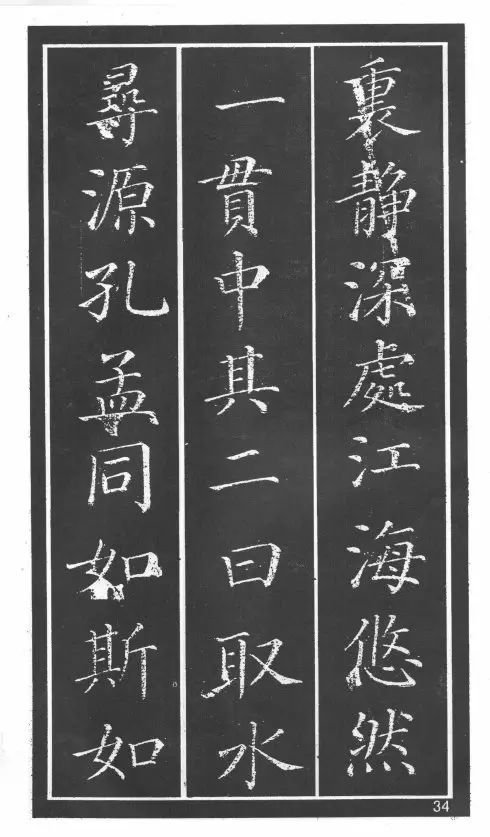 裏静深處江海悠然
一貫中其二曰取水
尋源孔孟同如斯如
34